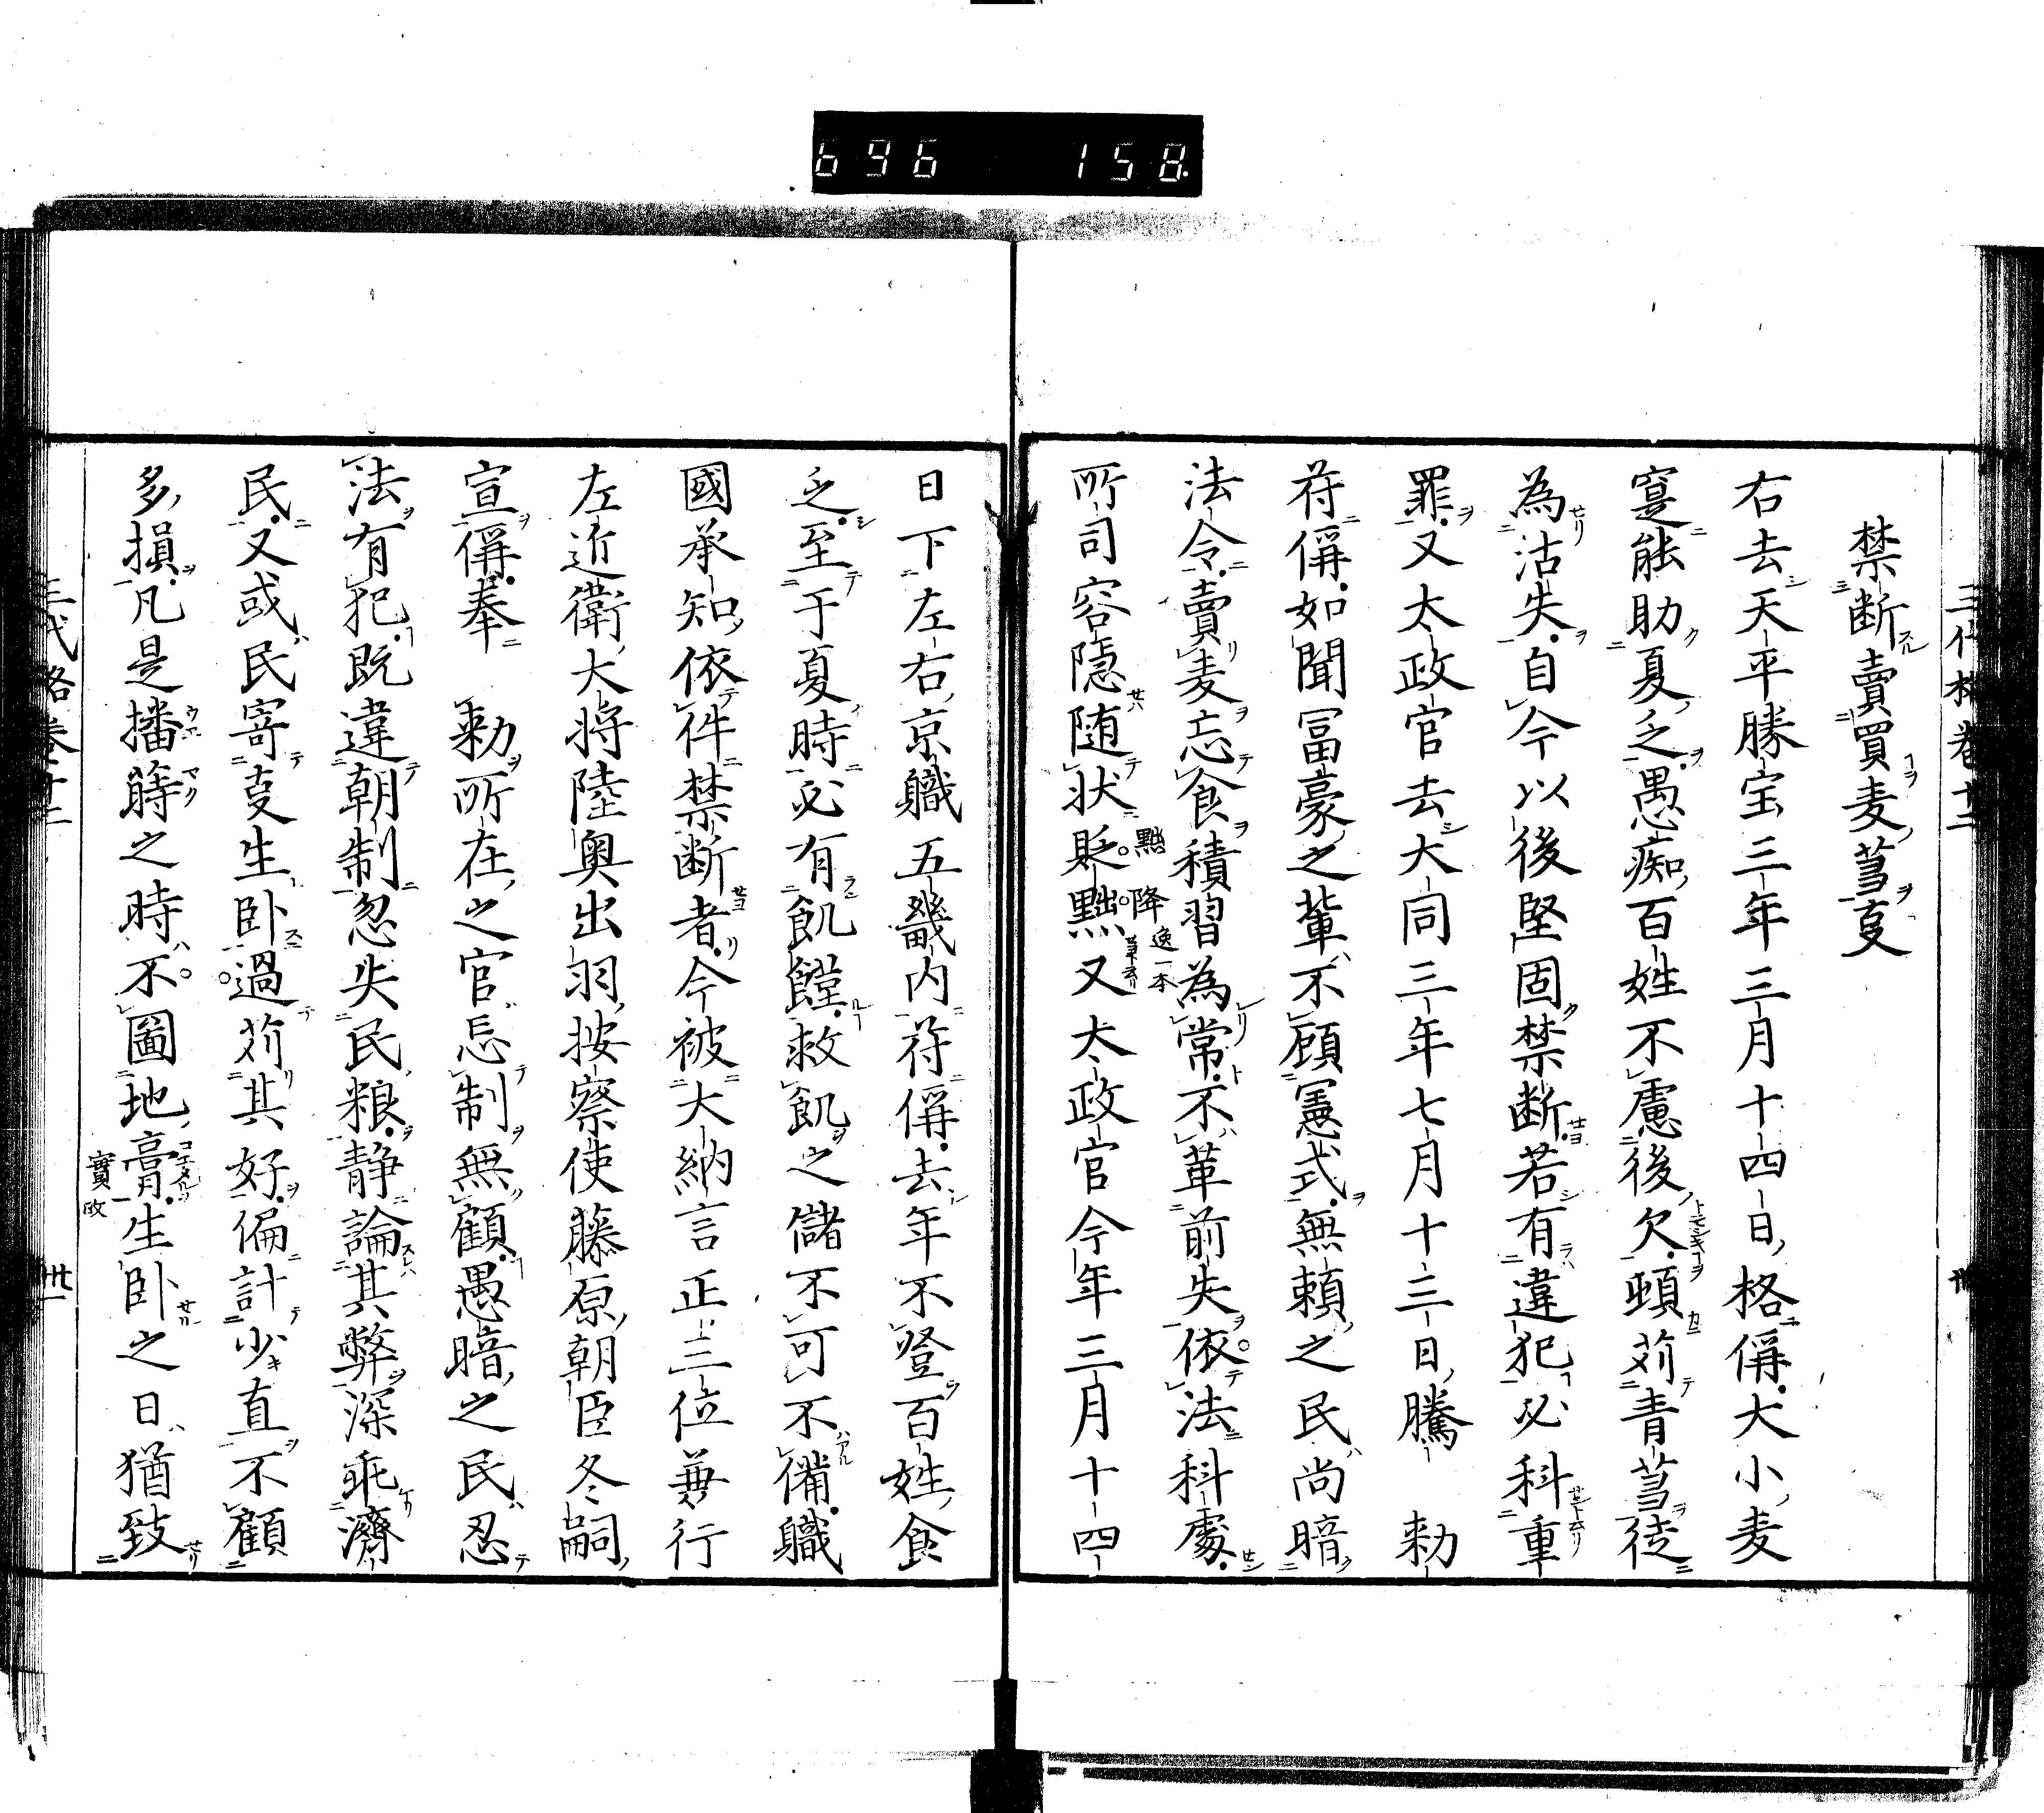 696 158
三代格巻十二
禁断賣買麦䓁㕝
右去天平勝宝三年三月十四日格偁大小麦
寔能助夏乏愚痴百姓不慮後欠頓苅青䓁徒
為沽失自今以後堅固禁断若有違犯必科重
罪又太政官去大同三年七月十三日騰 勅
符偁如聞冨豪之輩不顧憲式無頼之民尚暗
法令賣麦忘食積習為常不革前失依法科處
所司容隠随状貶黜又太政官今年三月十四
黜降逸一本
日下左右京職五畿内符偁去年不登百姓食
乏至于夏時必有飢饉救飢之儲不可不備職
國承知依件禁断者今被大納言正三位兼行
左近衛大将陸奥出羽按察使藤原朝臣冬嗣
宣偁奉 勅所在之官忘制無顧愚暗之民忍
法有犯既違朝制忽失民粮静論其弊深乖濟
民又或民寄㕝生卧過苅其好偏計少直不顧
多損凡是播蒔之時不圖地膏生卧之日猶致
實㪅
三代格巻十二
卅一